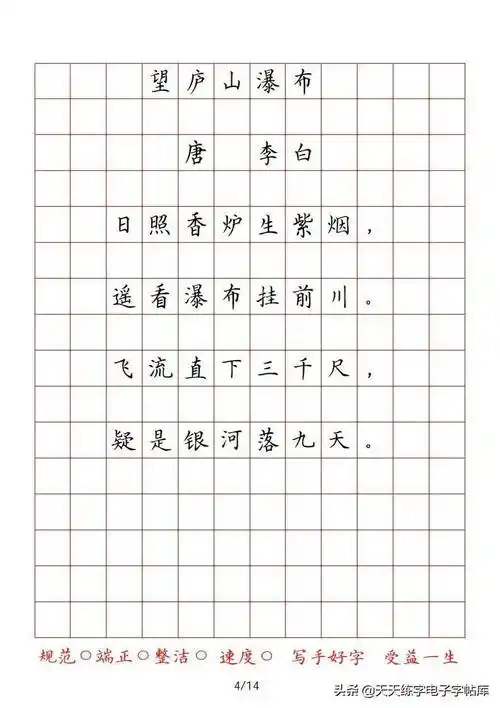 望庐山瀑布
唐 李白
日照香炉生紫烟，
遥看瀑布挂前川。
飞流直下三千尺，
疑是银河落九天。
规范○端正○整洁○ 速度○ 写手好字 受益一生
4/14
头条@天天练字电子字帖库